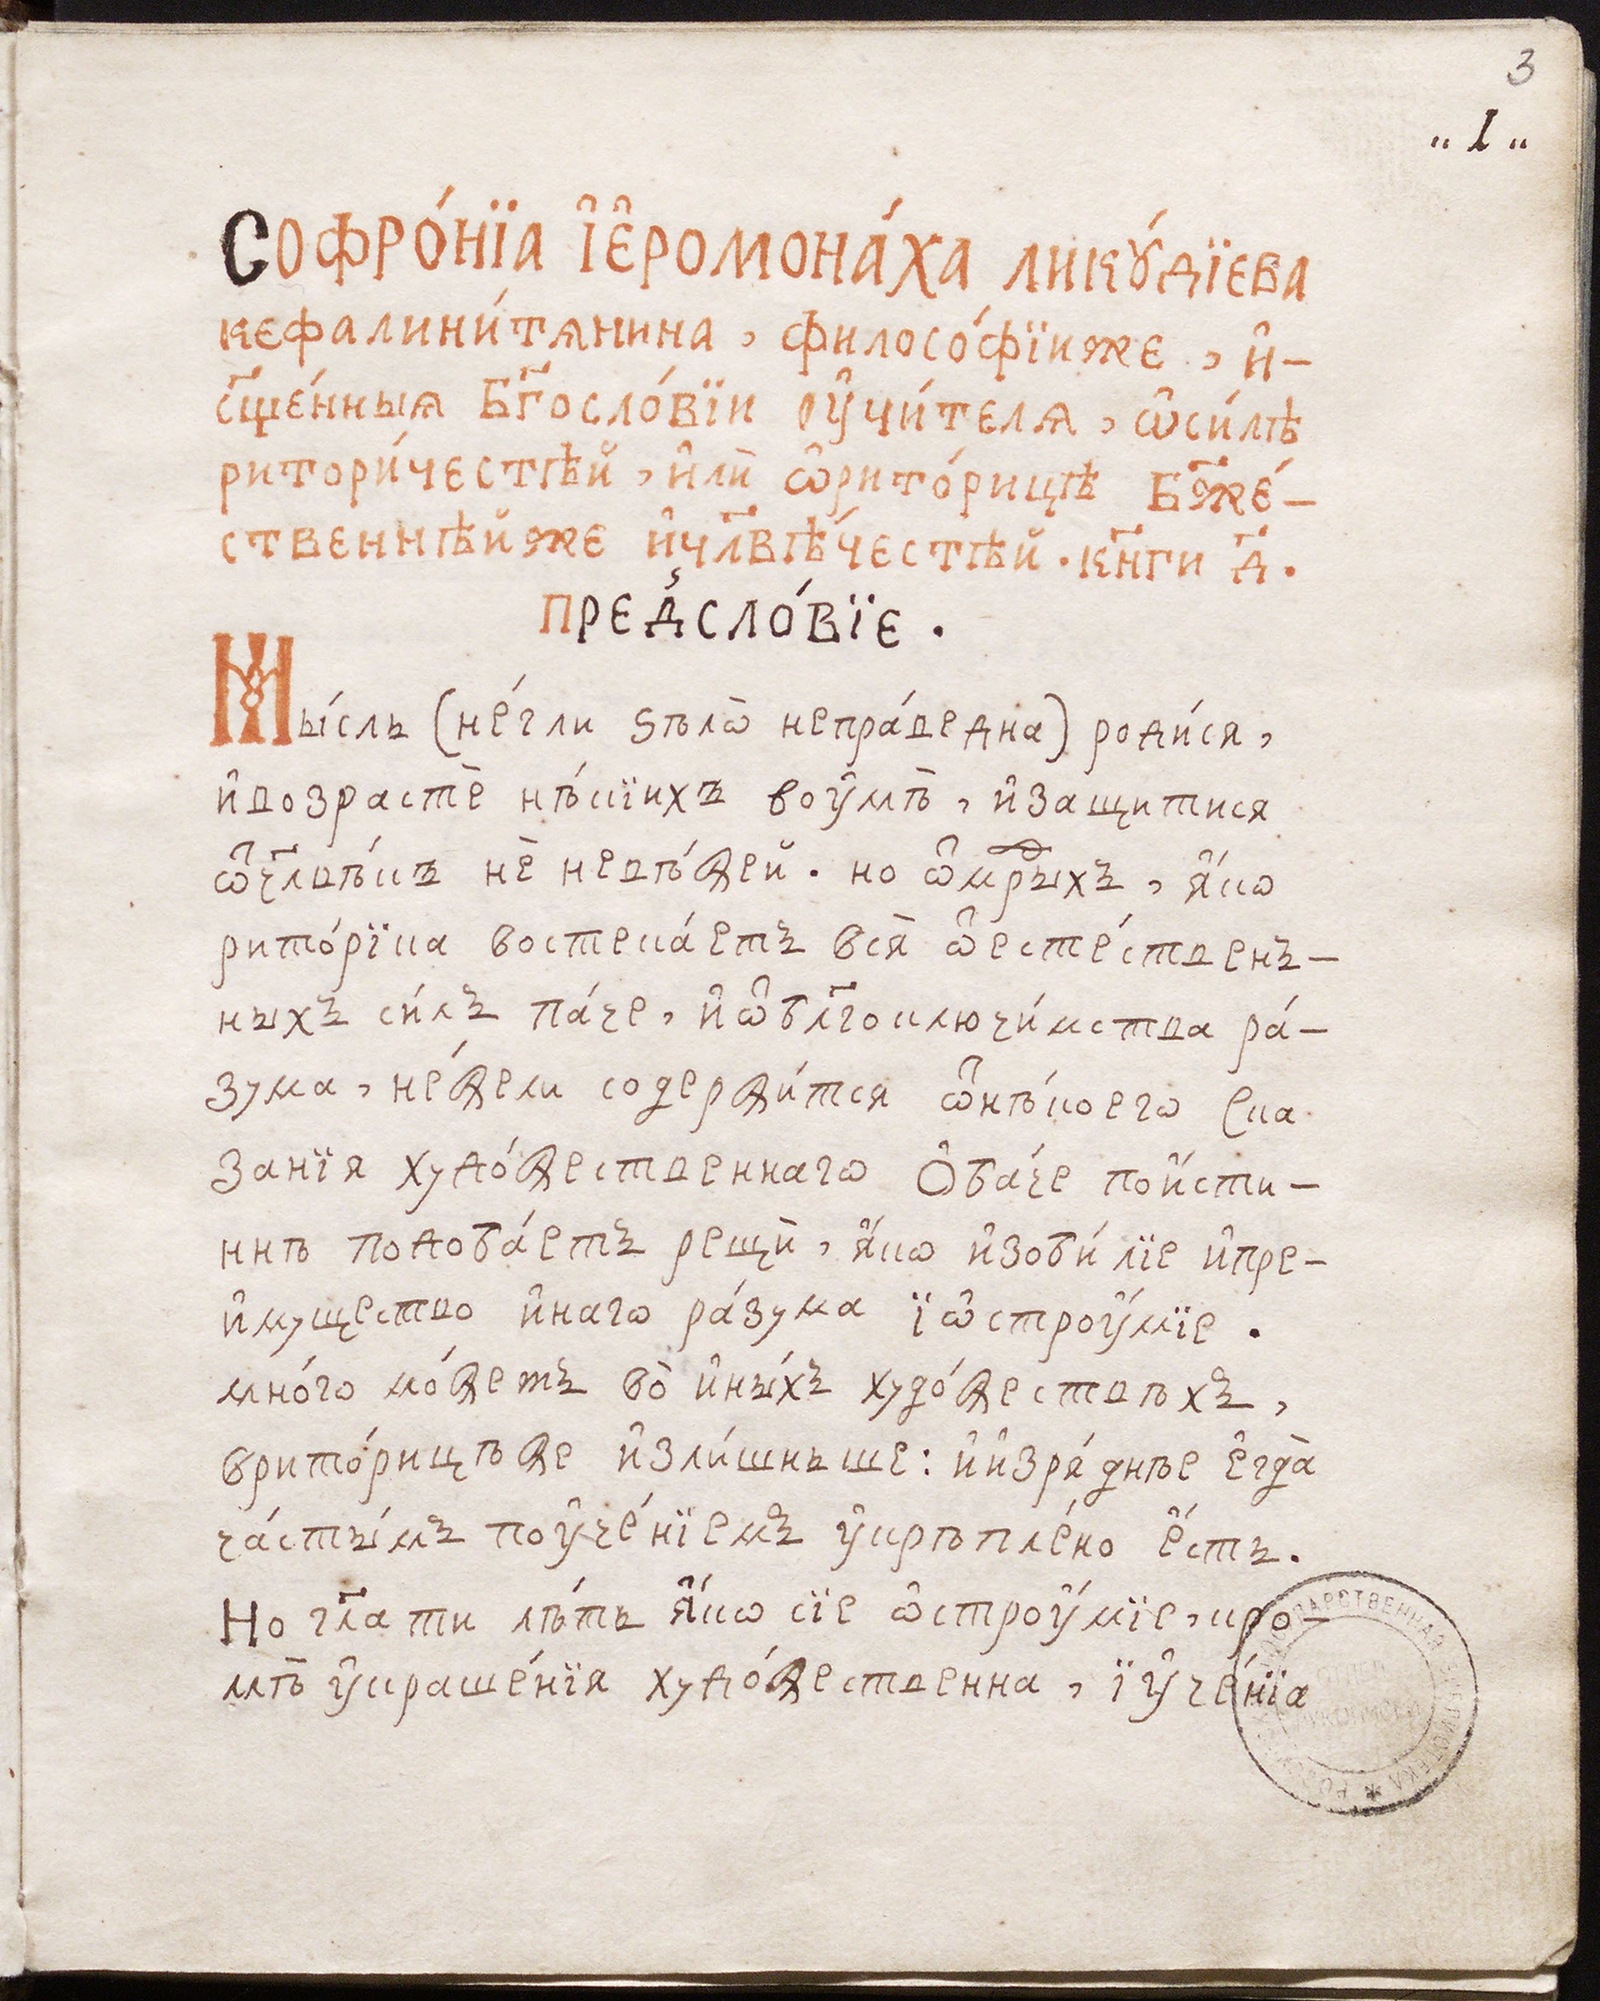 3
„ 1 „
Софро́нїа і҆е҆ромона́ха лику́дїева
кефалини́тѧнина, филосо́фїиже, и҆-
сщ҃е́нныѧ бг҃осло́вїи ᲂу҆чи́телѧ, ѡ҆си́лѣ
ритори́честѣй, и҆лѝ ѡ҆рито́рицѣ бж҃е́-
ственнѣйже и҆чл҃вѣ́честѣй. кн҃ги д҃.
предсло́вїе.
Мы́сль (не́гли ѕѣлѡ̀ непра́ведна) роди́ся,
и҆возрастѐ нѣ́кїихъ воу҆мѣ̀, и҆защитися
ѿчл҃вѣ́къ нѐ невѣ́жей. но ѿмр҃ыхъ, ꙗ҆́кѡ
рито́рїка востека́етъ вся̀ ѿесте́ственъ-
ныхъ си́лъ па́че, и҆ѿбл҃гоключи́мства ра́-
зума, не́жели содержи́тся ѿнѣ́коегѡ ска
занїя худо́жественнагѡ Ѻ҆ба́че пои҆́сти-
ннѣ подоба́етъ рещѝ, ꙗ҆́кѡ и҆зоби́лїе и҆пре-
и҆мущество и҆нагѡ ра́зума ї ѡ҆строу҆́мїе.
мно́гѡ мо́жетъ во̀ и҆ны́хъ худо́жествѣхъ,
врито́рицѣже и҆зли́шныше: и҆и҆зря́днѣе е҆гда̀
ча́стымъ поу҆че́нїемъ у҆крѣпле́но е҆́сть.
Но гл҃ати лѣ́ть ꙗ҆́кѡ сїе ѡ҆строу҆́мїе, кро-
мѣ̀ у҆краше́нїя худо́жественна, ї у҆че́нїа